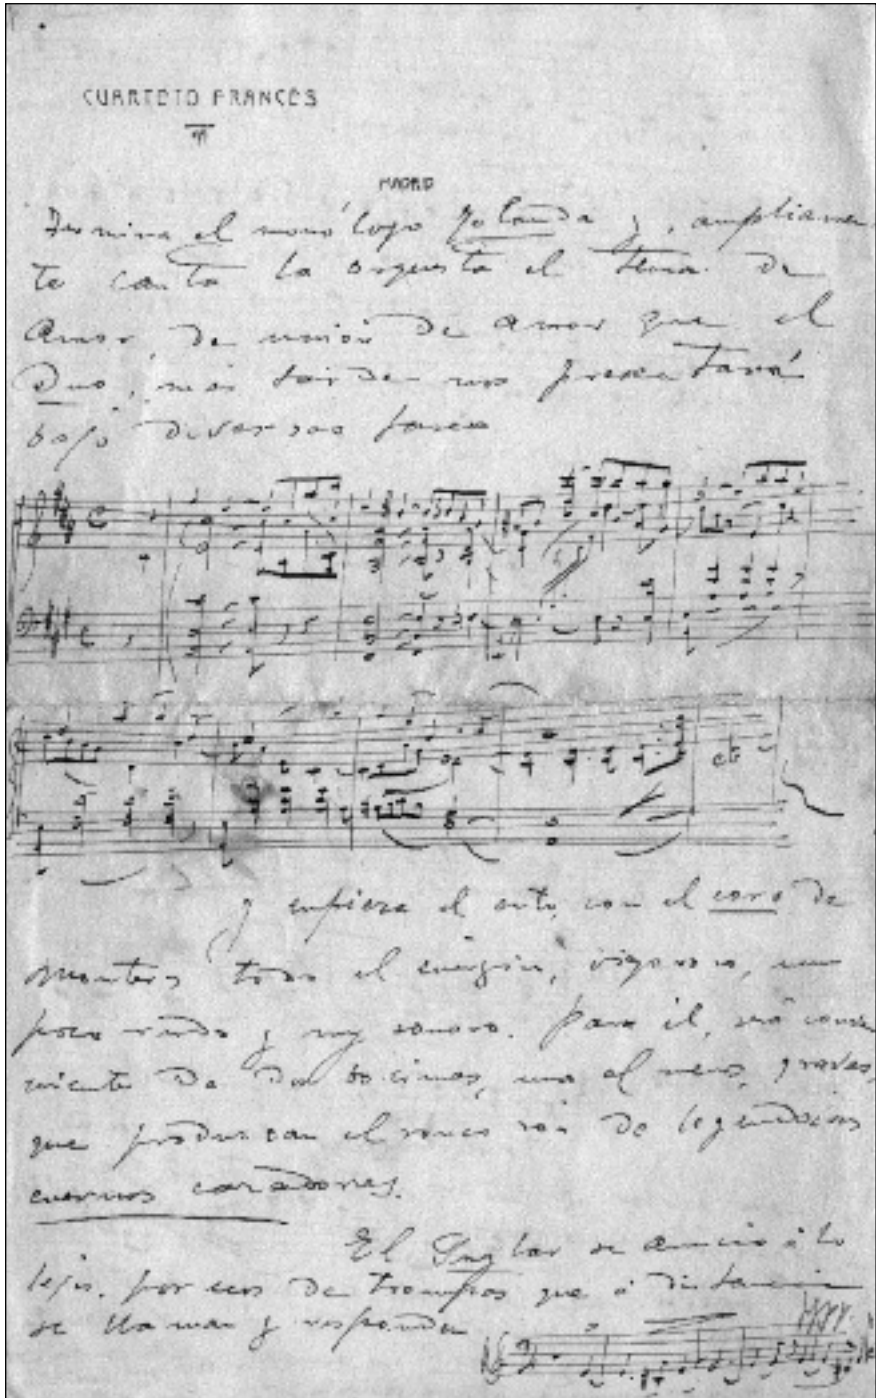 CUARTETO FRANCÉS
MADRID
Termina el monólogo Yolanda y, ampliamen
te canta la orquesta el tema de
Amor, de unión de amor que el
Duo, más tarde nos presentará
bajo diversas fases
etc
y empieza el acto, con el coro de
Monteros todo el energía, vigoroso, un
poco rudo y muy sonoro. Para él, será conve
niente de dos bocinas, una al menos, graves,
que produzcan el ronco són de legendarios
cuernos cazadores.
El Juglar se anuncia á lo
lejos. por ecos de trompas que á distancia
se llaman y responden
pppp.